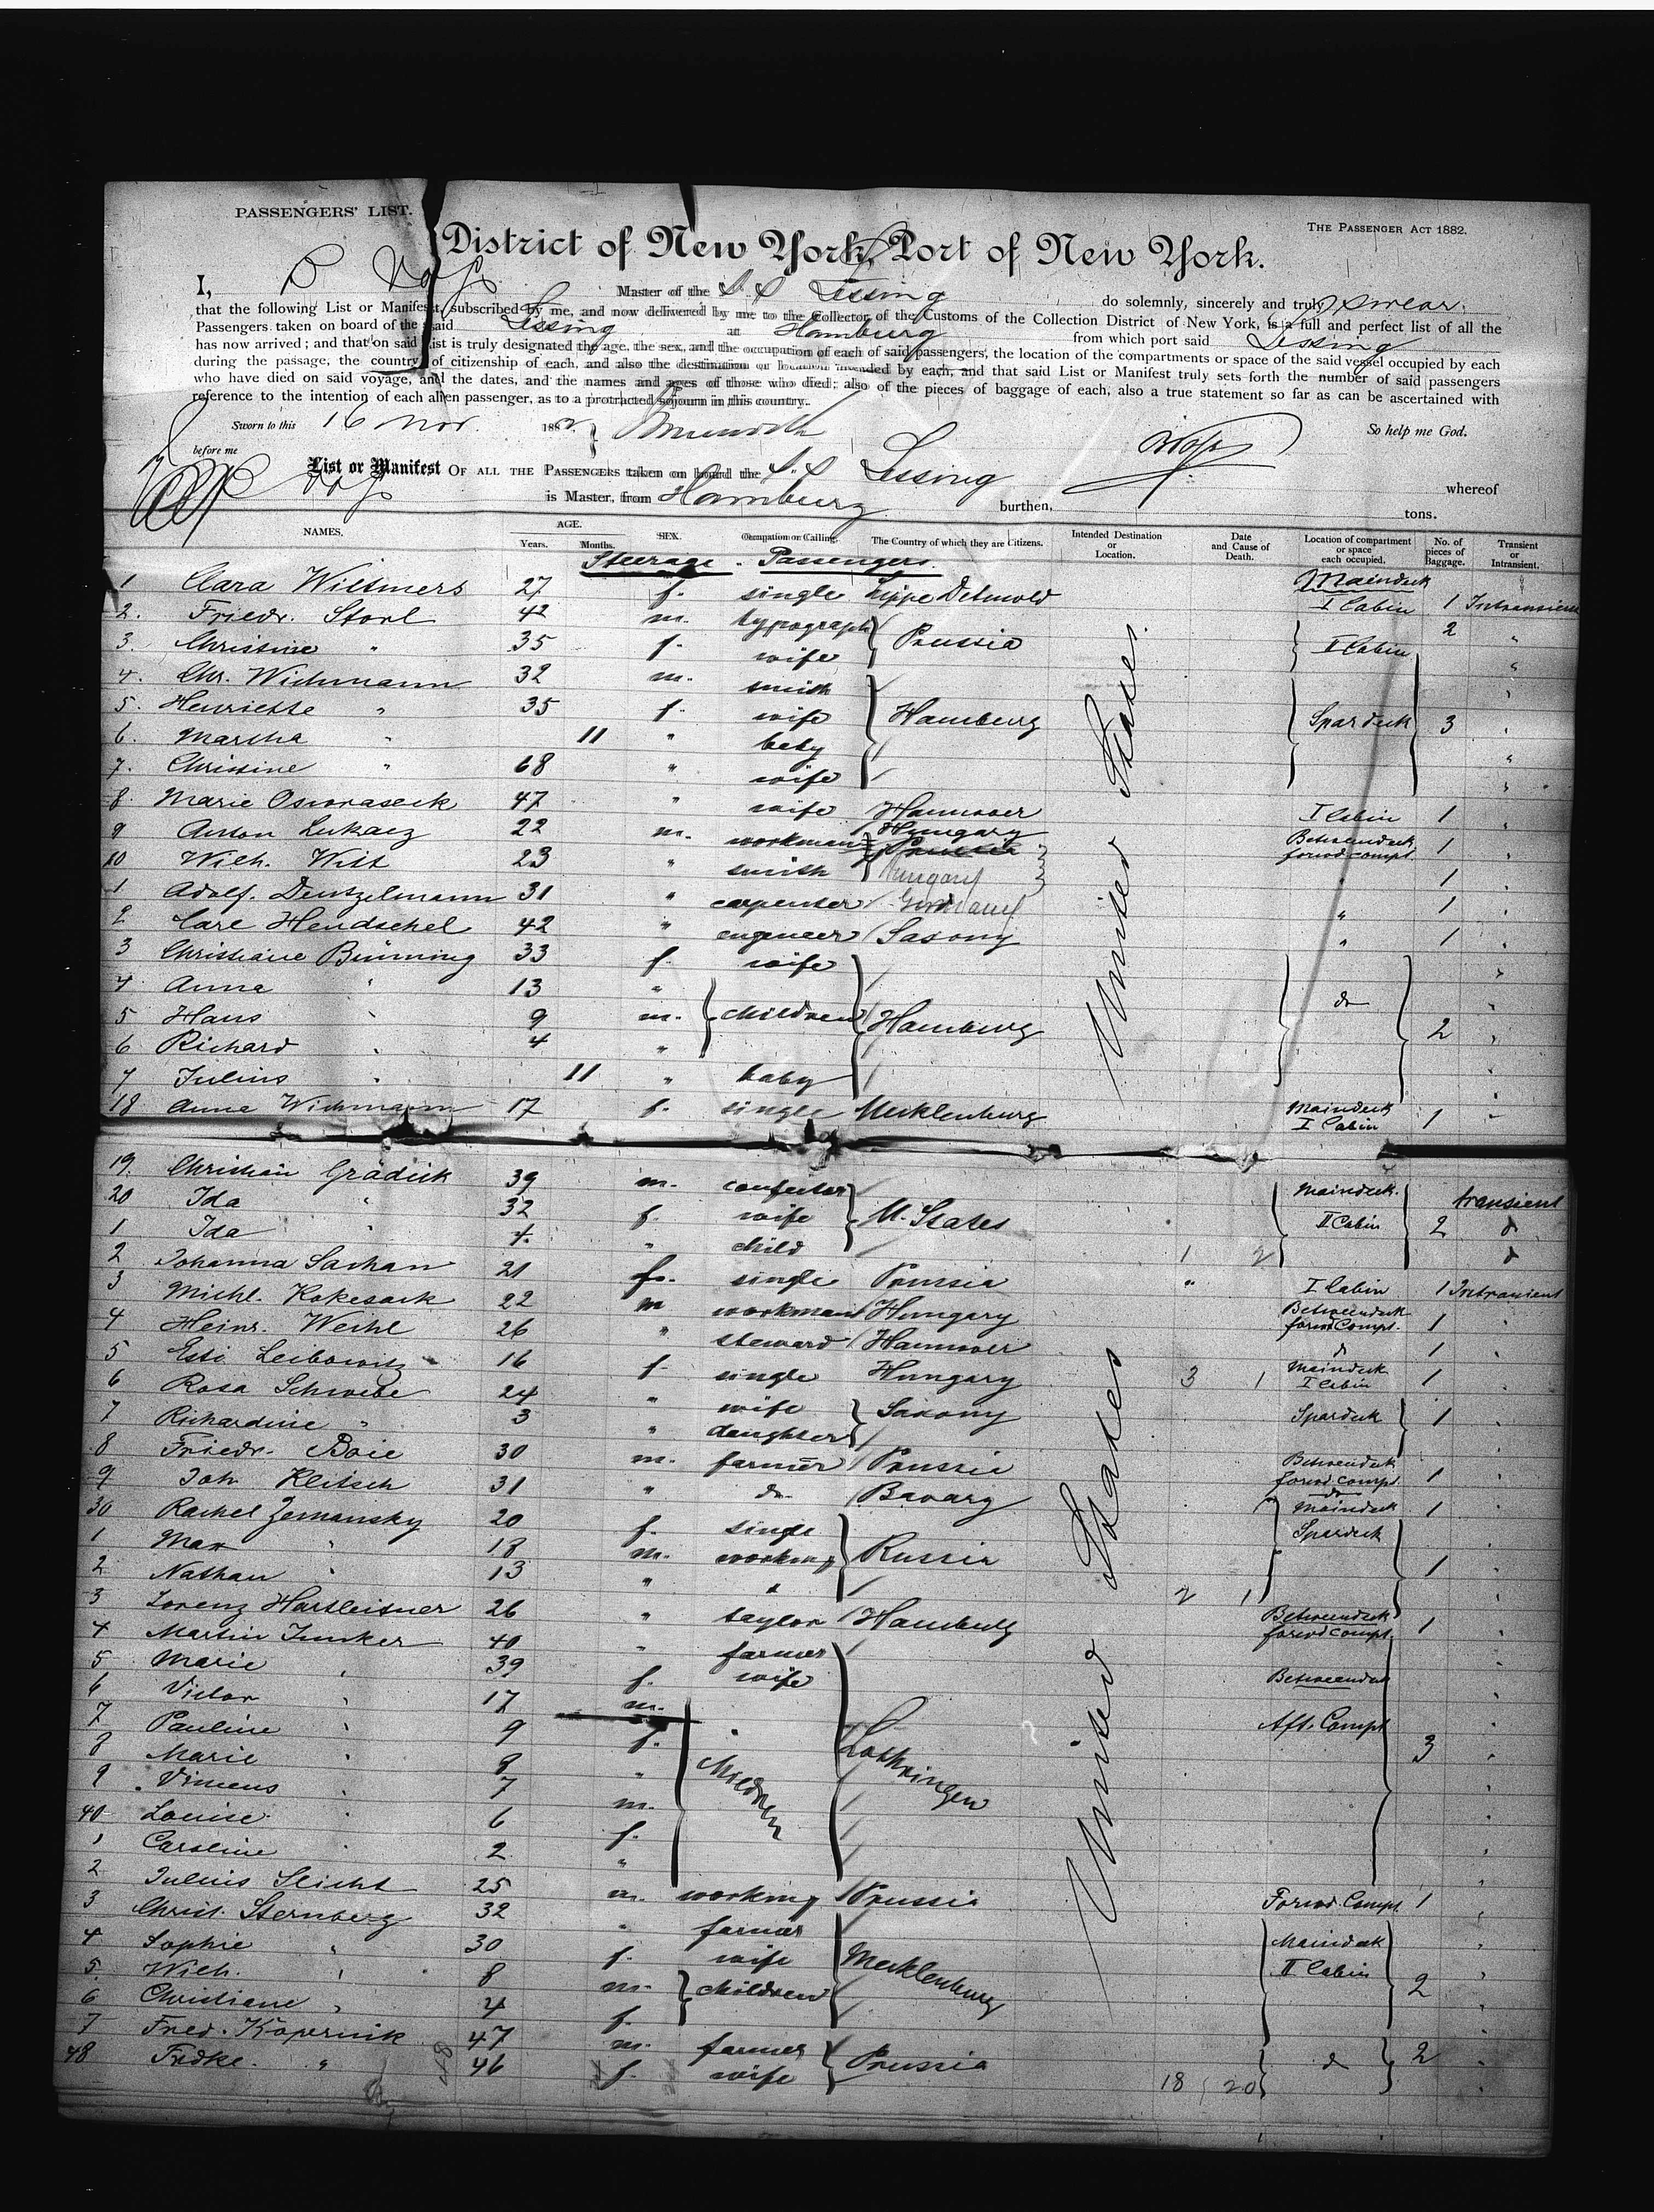 PASSENGERS' LIST.
THE PASSENGER ACT 1882.
District of New York, Port of New York.
I, Master of the S.S. Lessing do solemnly, sincerely and truly swear.
that the following List or Manifest subscribed by me, and now delivered by me to the Collector of the Customs of the Collection District of New York, is a full and perfect list of all the
Passengers taken on board of the said Lessing at Hamburg from which port said Lessing
has now arrived; and that on said list is truly designated the age, the sex, and the occupation of each of said passengers, the location of the compartments or space of the said vessel occupied by each
during the passage, the country of citizenship of each, and also the destination or location intended by each, and that said List or Manifest truly sets forth the number of said passengers
who have died on said voyage, and the dates, and the names and ages of those who died; also of the pieces of baggage of each, also a true statement so far as can be ascertained with
reference to the intention of each alien passenger, as to a protracted sojourn in this country.
Sworn to this 16 Nov. 188 So help me God.
before me
List or Manifest OF ALL THE PASSENGERS taken on board the S.S. Lessing whereof
is Master, from Hamburg burthen, tons.
NAMES. AGE. Years. Months. SEX. Occupation or Calling. The Country of which they are Citizens. Intended Destination or Location. Date and Cause of Death. Location of compartment or space each occupied. No. of pieces of Baggage. Transient or Intransient.
Steerage - Passengers.
Maindeck
1 Clara Wiltmers 27 f. single Lippe Detmold I Cabin 1 Intransient
2. Friedr. Storl 42 m. typograph Prussia II Cabin 2 "
3. Christine " 35 f. wife "
4. Chr. Wichmann 32 m. smith Hamburg Spardeck 3
5. Henriette " 35 f. wife
6. Martha " 11 " baby
7. Christine " 68 " wife "
8. Marie Osworaseck 47 " wife Hannover I Cabin 1
9 Anton Lukacz 22 m. workman Hungary Betweendeck forwd compt. 1
10 Wilh. Witt 23 " smith Hungary " 1
1 Adolf. Dentzelmann 31 " carpenter Germany " 1
2 Carl Hendschel 42 " engeneer Saxony " 1
3 Christiane Bünning 33 f. wife Hamburg do 2
4 Anna " 13 " children
5 Hans " 9 m.
6 Richard " 4 "
7 Julius " 11 " baby
18 Anna Wichmann 17 f. single Mecklenburg Maindeck I Cabin 1
United States
19. Christian Grädick 39 m. confector U. States Maindeck II Cabin 2 transient
20 Ida " 32 f. wife do
1 Ida " 4 " child 1 2 do
2 Johanna Sachan 21 f. single Prussia " I Cabin 1 Intransient
3 Michl. Kokesack 22 m workman Hungary Betweendeck forwd Compt. 1
4 Heinr. Wechl 26 " steward Hannover do 1
5 Esti Leibowitz 16 f single Hungary 3 1 Maindeck I Cabin 1
6 Rosa Schwebe 24 " wife Saxony Spardeck 1
7 Richardine " 3 " daughter
8 Friedr. Boie 30 m. farmer Prussia Betweendeck forwd compt. 1
9 Joh. Klitsch 31 " do Bavary do 1
30 Rachel Zemansky 20 f. single Russia Maindeck Spardeck 1
1 Max " 18 m. working
2 Nathan " 13 " " 2 1
3 Lorenz Hartleitner 26 " taylor Hamburg Betweendeck forwd compt. 1
4 Martin Junker 40 " farmer Lothringen Betweendeck Aft. Compt 3
5 Marie " 39 f. wife
6 Victor " 17 m. children
7 Pauline " 9 f.
8 Marie " 8 "
9 Vincens " 7 m.
40 Louise " 6 f.
1 Caroline " 2 "
2 Julius Slicht 25 m. working Prussia Forwd. Compt 1
3 Christ. Sternberg 32 " farmer Mecklenburg Maindeck II Cabin 2
4 Sophie " 30 f. wife
5. Wilh. " 8 m. children
6 Christiane " 4 f.
7 Fred. Kopernik 47 m. farmer Prussia do 2
48 Fridke. " 46 f. wife 18 20
United States